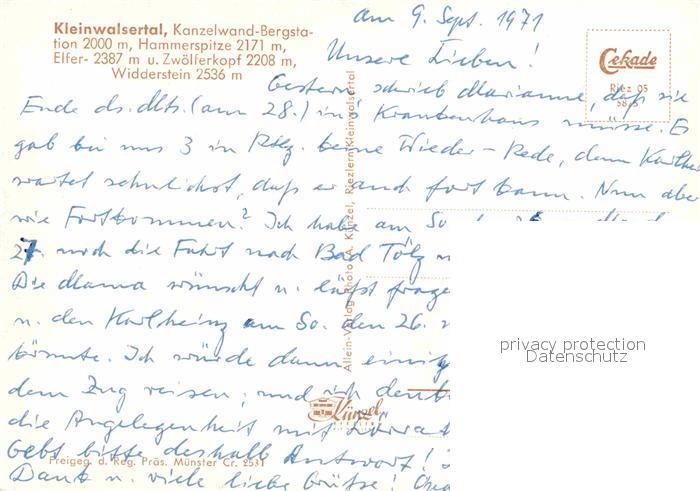 Kleinwalsertal, Kanzelwand-Bergsta-
tion 2000 m, Hammerspitze 2171 m,
Elfer- 2387 m u. Zwölferkopf 2208 m,
Widderstein 2536 m
Cekade
Riez 05
58/5
am 9. Sept. 1971
Unsere Lieben!
Gestern schrieb Marianne, daß sie
Ende ds. Mts. (am 28.) ins Krankenhaus müsse. Es
gab bei uns 3 in Rtlg. keine Wieder-Rede, denn Karlhei
wartet sehnlichst, daß er auch fort kann. Nun aber
wie Fortkommen? Ich habe am So
27. noch die Fahrt nach Bad Tölz
Die Mama wünscht u. läßt frage
u. den Karlheinz am So. den 26.
könnte. Ich würde dann einig
dem Zug reisen, und ich
die Angelegenheit mit
Gebt bitte deshalb Antwort!
Dank u. viele liebe Grüße!
Allein-Verlag Photo A. Künzel, Riezlern/Kleinwalsertal
Künzel
Freigeg. d. Reg. Präs. Münster Cr. 2531
privacy protection
Datenschutz